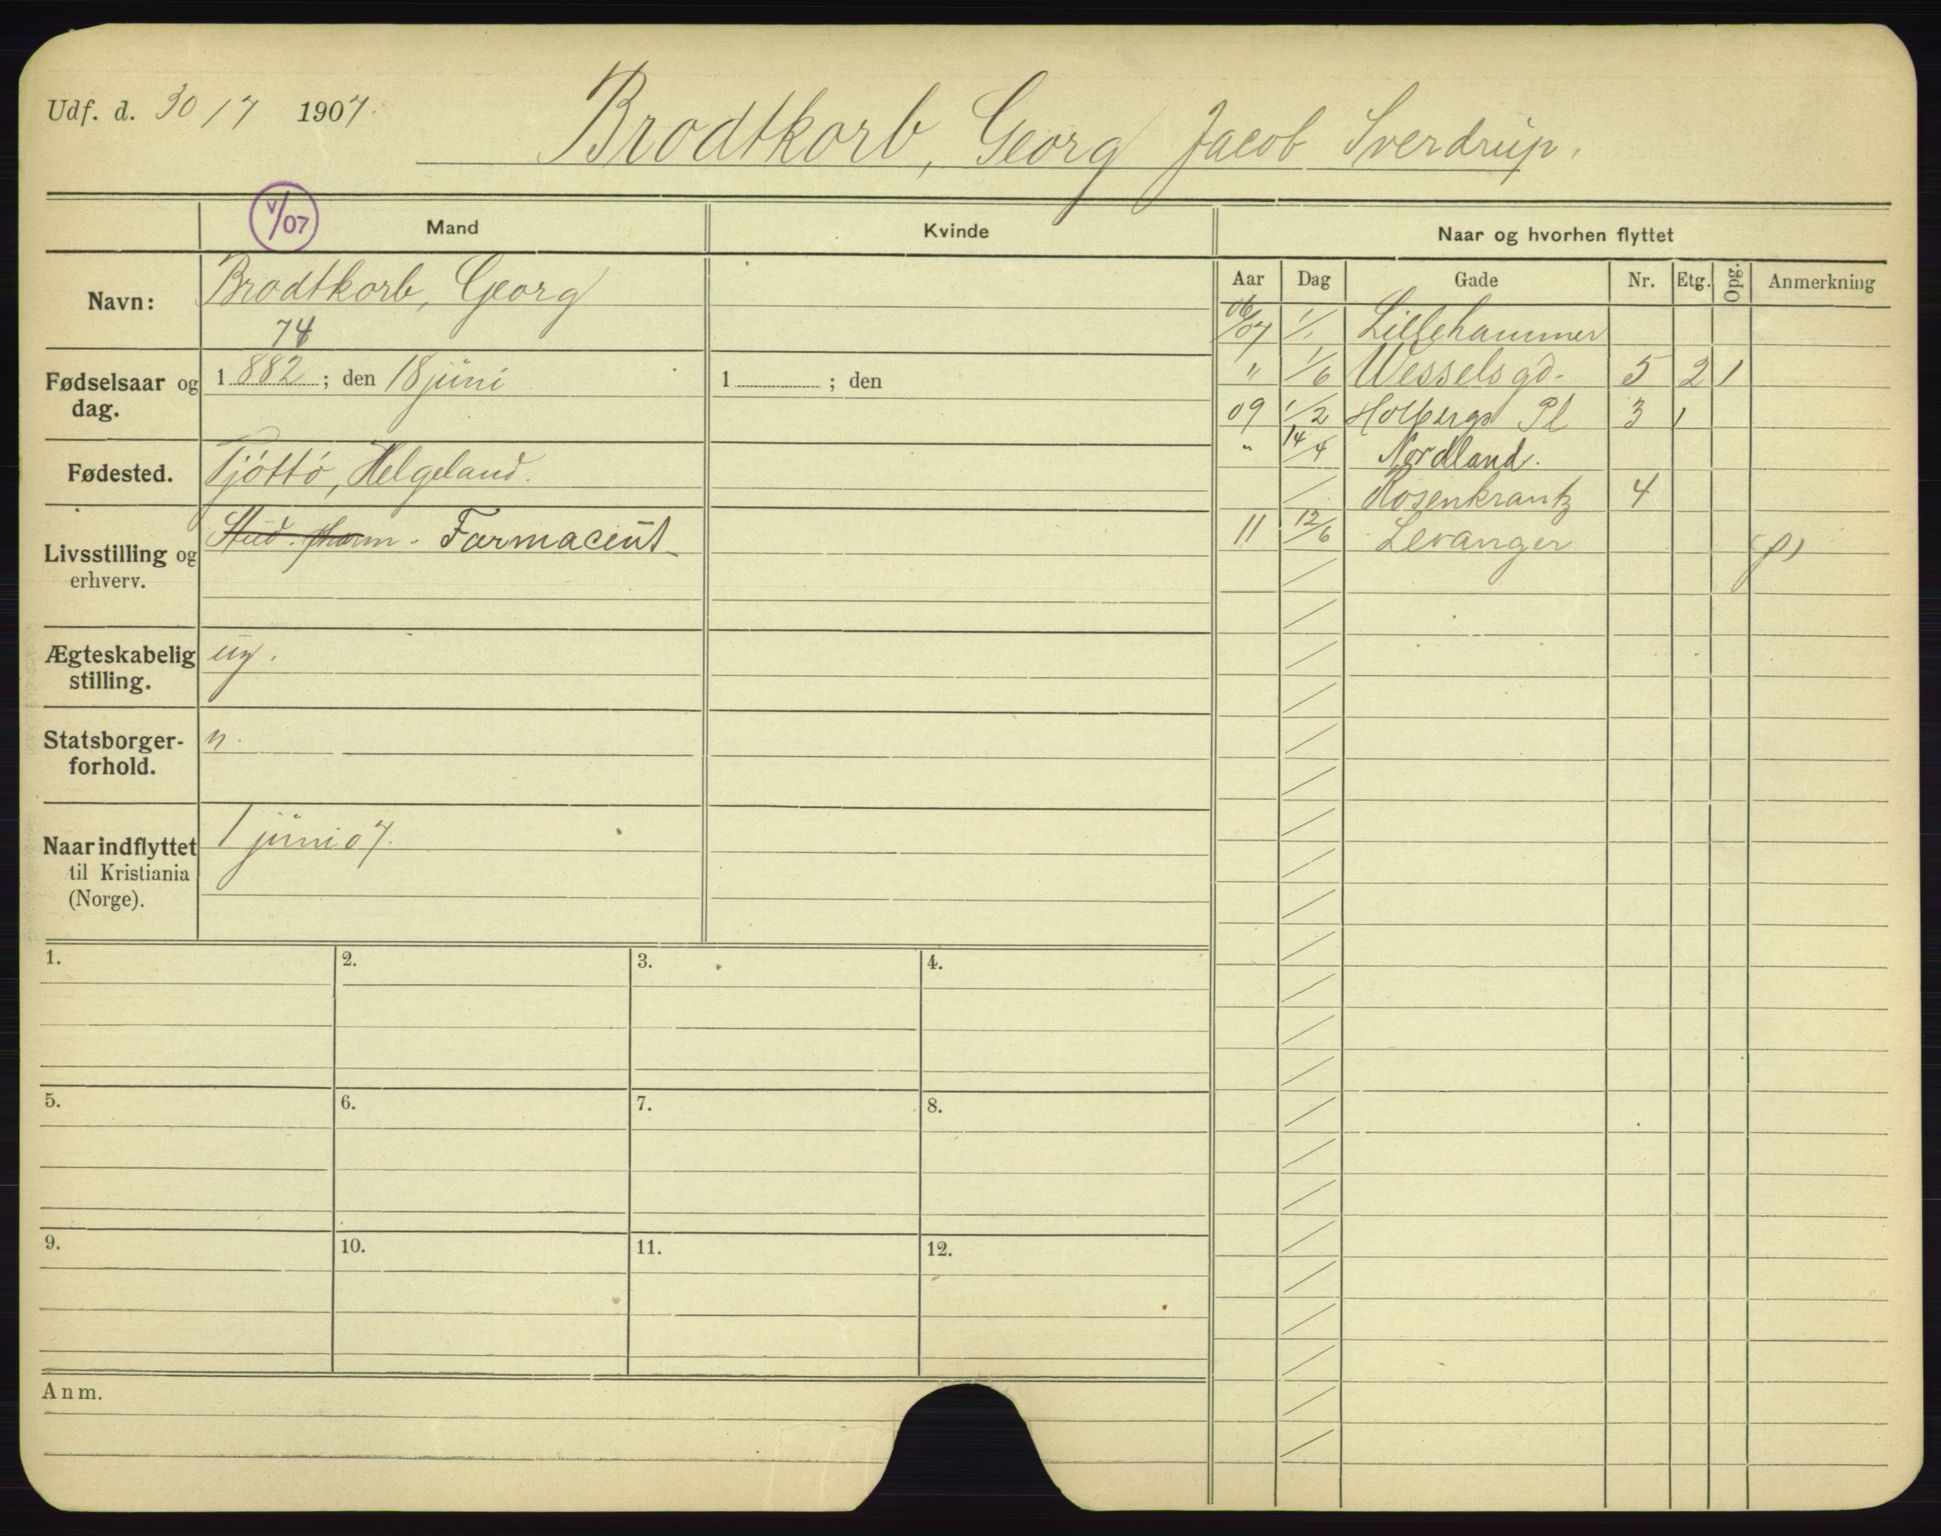 Udf. d. 30/7 1907.
Brodtkorb, Georg Jacob Sverdrup.
V/07
Mand
Kvinde
Naar og hvorhen flyttet
Navn:
Brodtkorb, Georg
74
Aar Dag Gade Nr. Etg. Opg. Anmerkning
06/07 1/1 Lillehammer
" 1/6 Wesselsgd. 5 2 1
09 1/2 Holbergs Pl 3 1
" 14/4 Nordland.
Rosenkrantz 4
11 12/6 Levanger
(p)
Fødselsaar og dag.
1882; den 18 juni
1 ; den
Fødested.
Tjøttø, Helgeland.
Livsstilling og erhverv.
Stud. pharm. Farmaceut
Ægteskabelig stilling.
ug.
Statsborger-
forhold.
n.
Naar indflyttet
til Kristiania
(Norge).
1 juni 07.
1. 2. 3. 4.
5. 6. 7. 8.
9. 10. 11. 12.
Anm.